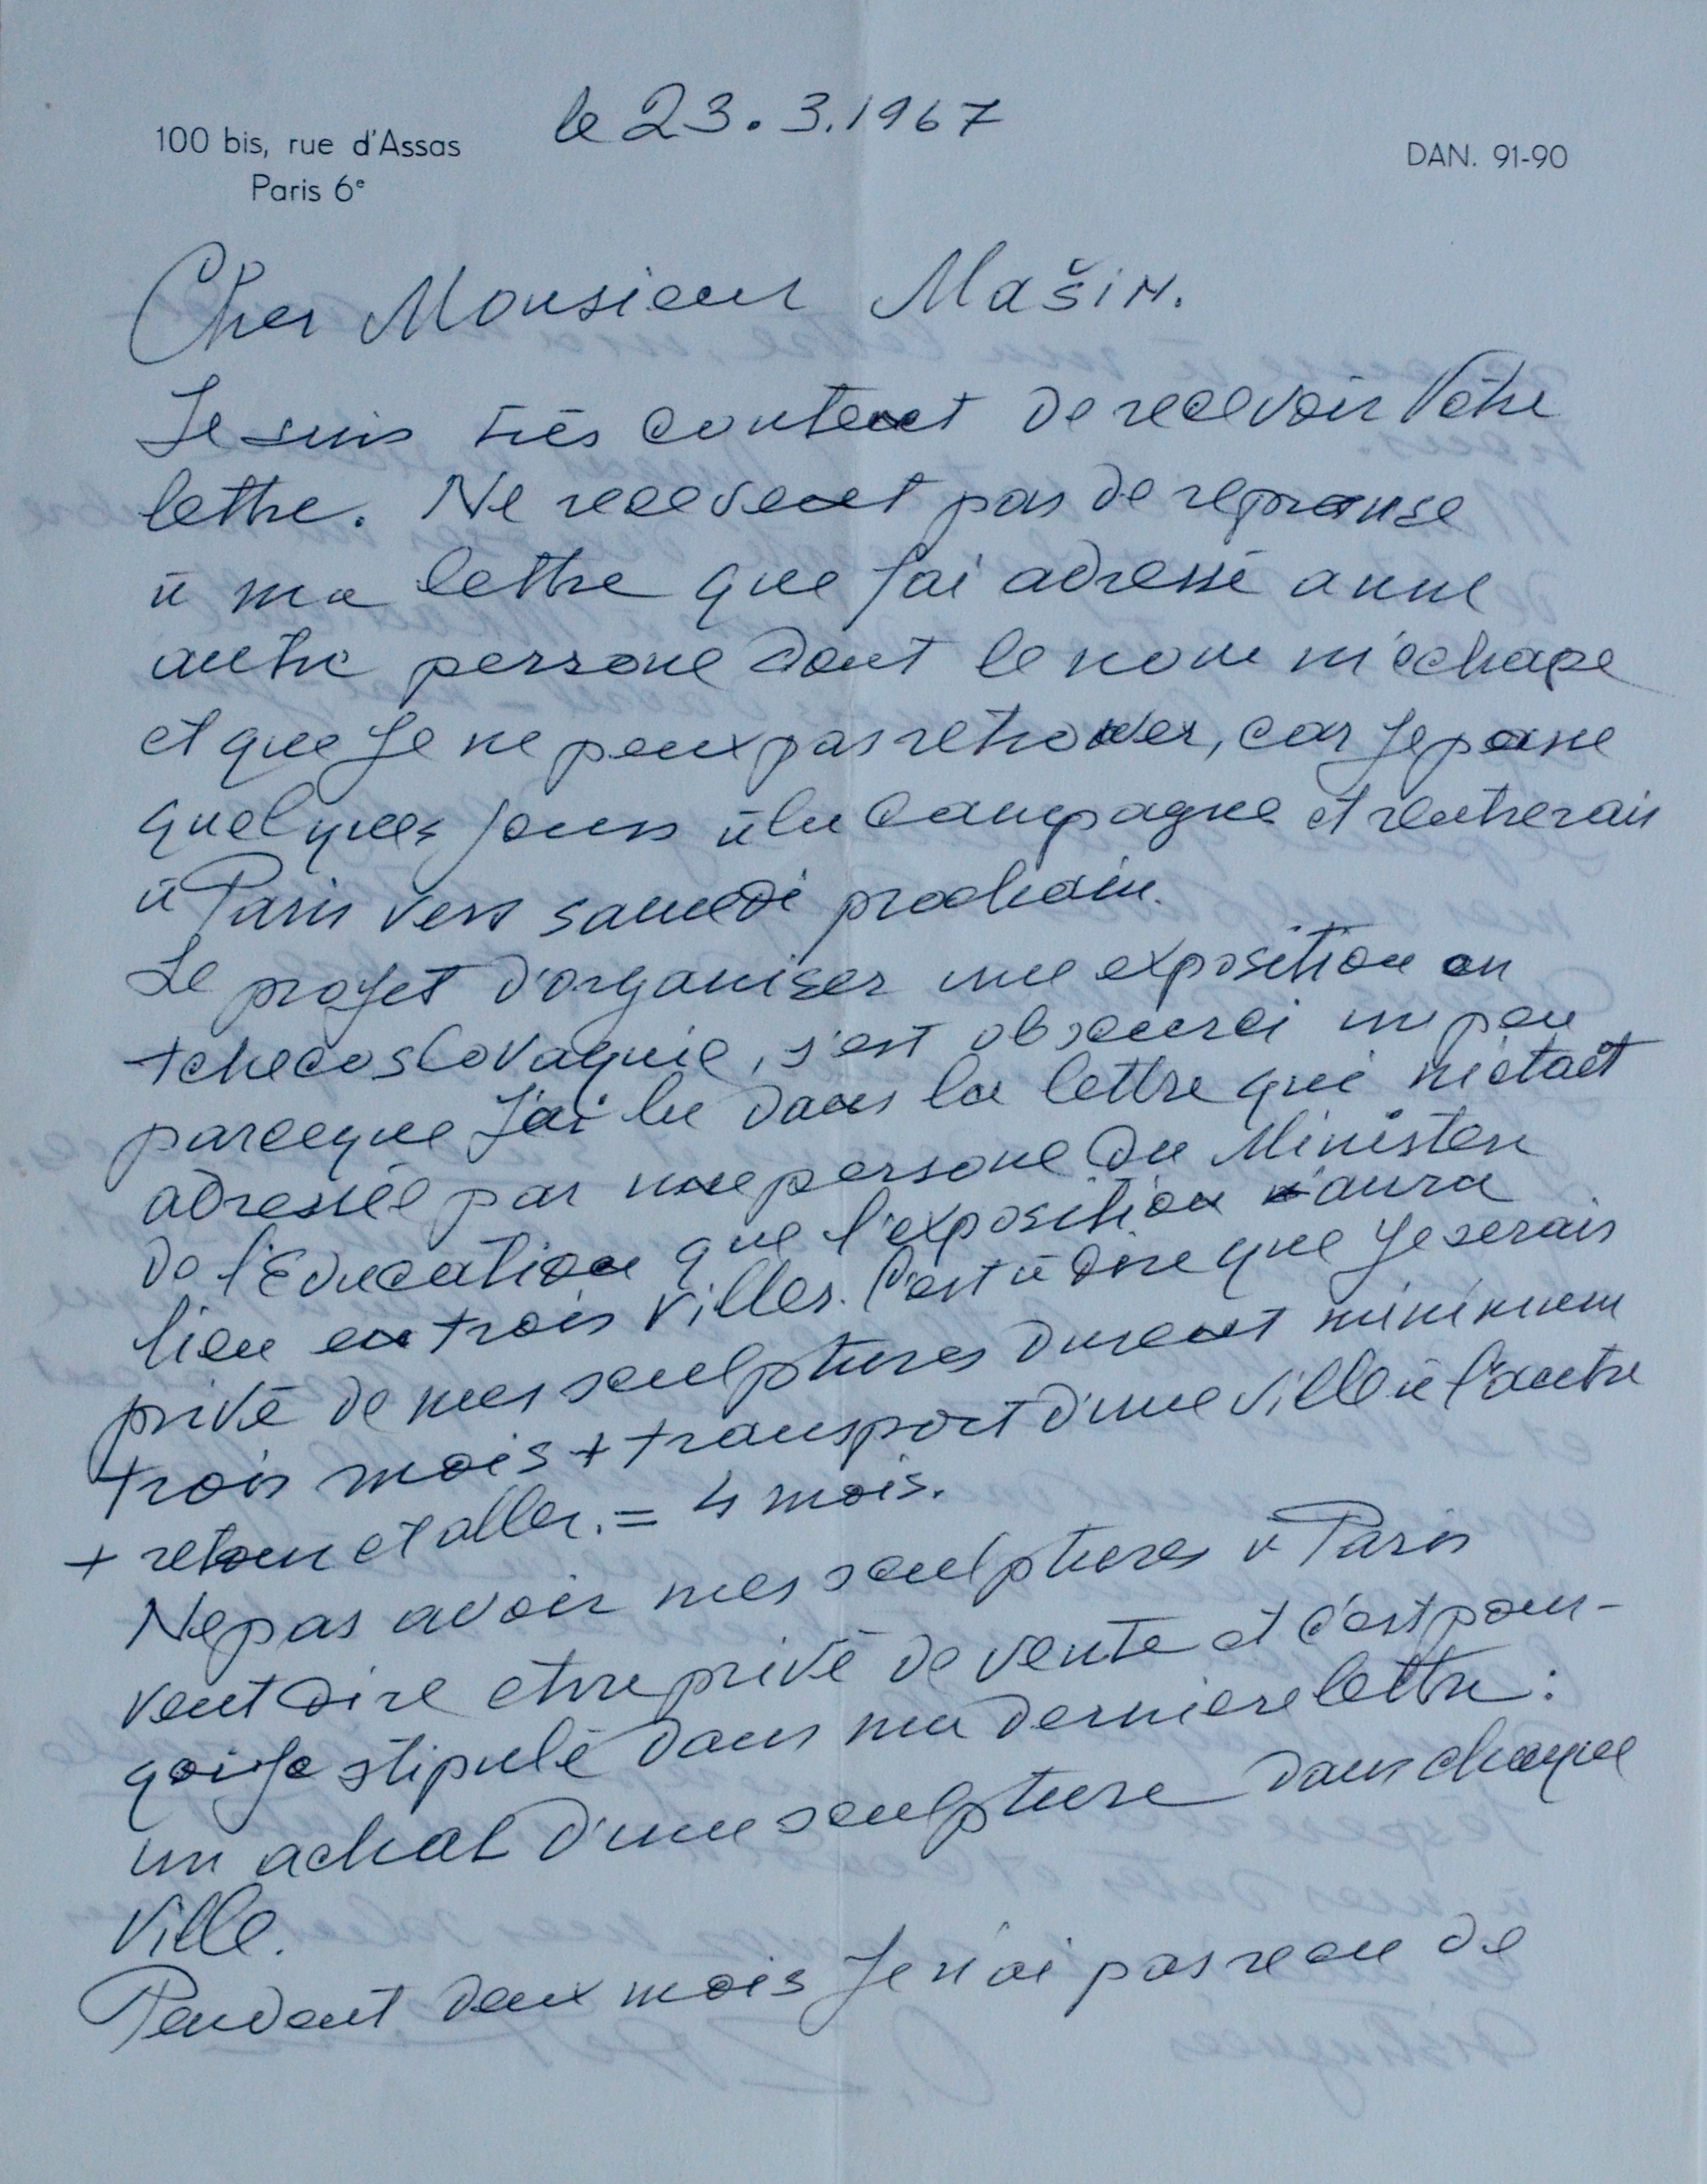 100 bis, rue d'Assas
Paris 6e
le 23.3.1967
DAN. 91-90
Cher Monsieur Mašin.
Je suis très content de recevoir Vôtre
lettre. Ne recevent pas de reponse
à ma lettre que j'ai adressé a une
autre persone dont le nom m'échape
et que je ne peux pas retrouver, car je passe
quelques jours à la campagne et rentrerais
à Paris vers samedi prochain.
Le projet d'organiser une exposition en
tchecoslovaquie, s'est obscurci un peu
parceque j'ai lu dans la lettre qui m'était
adressée par une persone du Ministere
de l'Education que l'exposition aura
lieu en trois villes. C'est à dire que je serais
privé de mes sculptures durent minimum
trois mois + transport d'une ville à l'autre
+ retour et aller. = 4 mois.
Ne pas avoir mes sculptures à Paris
veut dire etre privé de vente et c'est pour-
qoi je stipulé dans ma derniere lettre:
un achat d'une sculpture dans chaque
ville.
Pendent deux mois je n'ai pas recu de